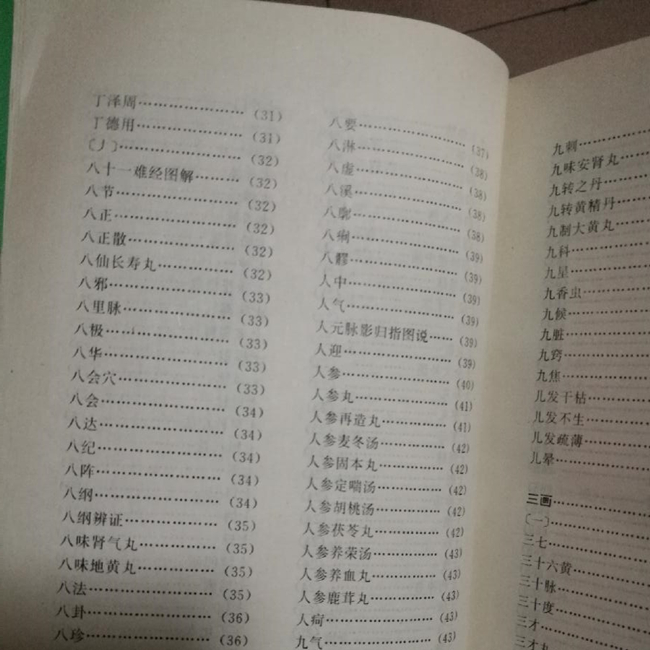 丁泽周…………………(31)
丁德用…………………(31)
〔丿〕…………………(32)
八十一难经图解………(32)
八节……………………(32)
八正……………………(32)
八正散…………………(32)
八仙长寿丸……………(32)
八邪……………………(33)
八里脉…………………(33)
八极……………………(33)
八华……………………(33)
八会穴…………………(33)
八会……………………(34)
八达……………………(34)
八纪……………………(34)
八阵……………………(34)
八纲……………………(34)
八纲辨证………………(35)
八味肾气丸……………(35)
八味地黄丸……………(35)
八法……………………(35)
八卦……………………(36)
八珍……………………(36)
八要……………………(37)
八淋……………………(37)
八虚……………………(38)
八溪……………………(38)
八廓……………………(38)
八痢……………………(39)
八髎……………………(39)
人中……………………(39)
人气……………………(39)
人元脉影归指图说……(39)
人迎……………………(39)
人参……………………(40)
人参丸…………………(41)
人参再造丸……………(41)
人参麦冬汤……………(42)
人参固本丸……………(42)
人参定喘汤……………(42)
人参胡桃汤……………(42)
人参茯苓丸……………(42)
人参养荣汤……………(43)
人参养血丸……………(43)
人参鹿茸丸……………(43)
人疴……………………(43)
九气……………………(43)
九刺
九味安肾丸
九转之丹
九转黄精丹
九制大黄丸
九科
九星
九香虫
九候
九脏
九窍
九焦
儿发干枯
儿发不生
儿发疏薄
儿晕
三画
〔一〕
三七
三十六黄
三十脉
三十度
三才
三才丸